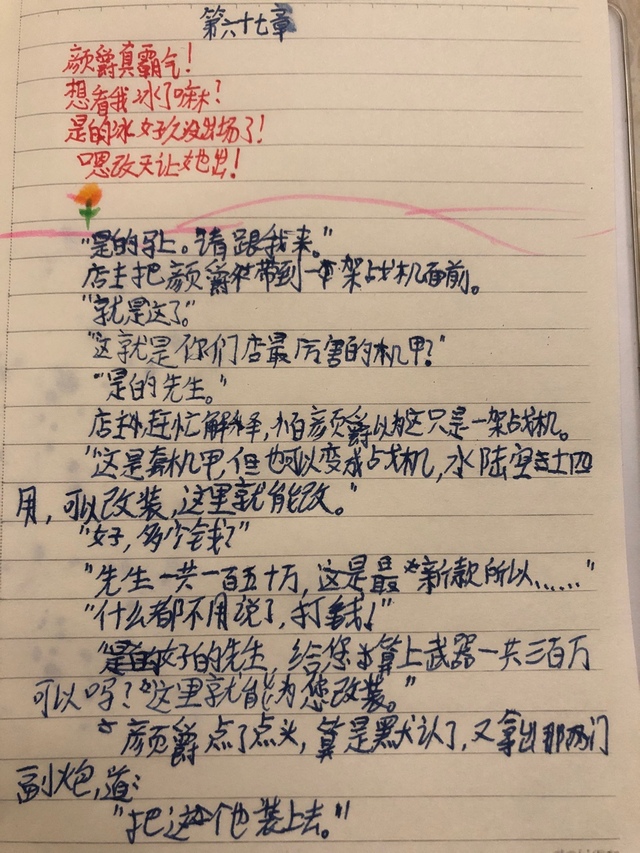 第六十七章
颜爵真霸气！
想看我冰了嘛？
是的冰好久没出场了！
嗯改天让她出！
"是的马上。请跟我来。"
店主把颜爵带到一架战机面前。
"就是这了。"
"这就是你们店最厉害的机甲？"
"是的先生。"
店主赶忙解释，怕颜爵以为这只是一架战机。
"这是套机甲，但也可以变成战机，水陆空土四
用，可以改装，这里就能改。"
"好，多少钱？"
"先生一共一百五十万，这是最新款所以……"
"什么都不用说了，打钱！"
"好的先生，给您算上武器一共三百万
可以吗？这里就能为您改装。"
颜爵点了点头，算是默认了，又拿出那两门
副炮，道：
"把这个也装上去。"